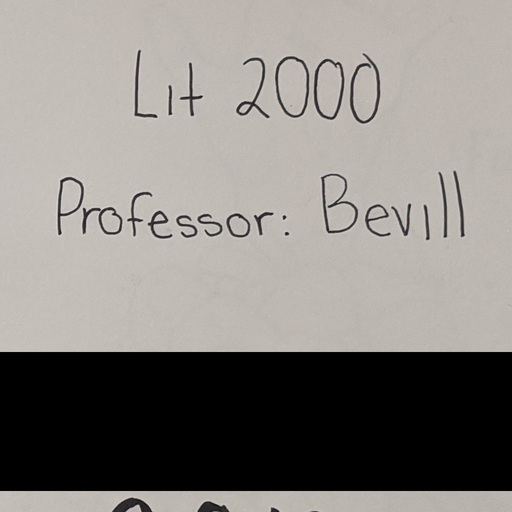 Lit 2000
Professor: Bevill